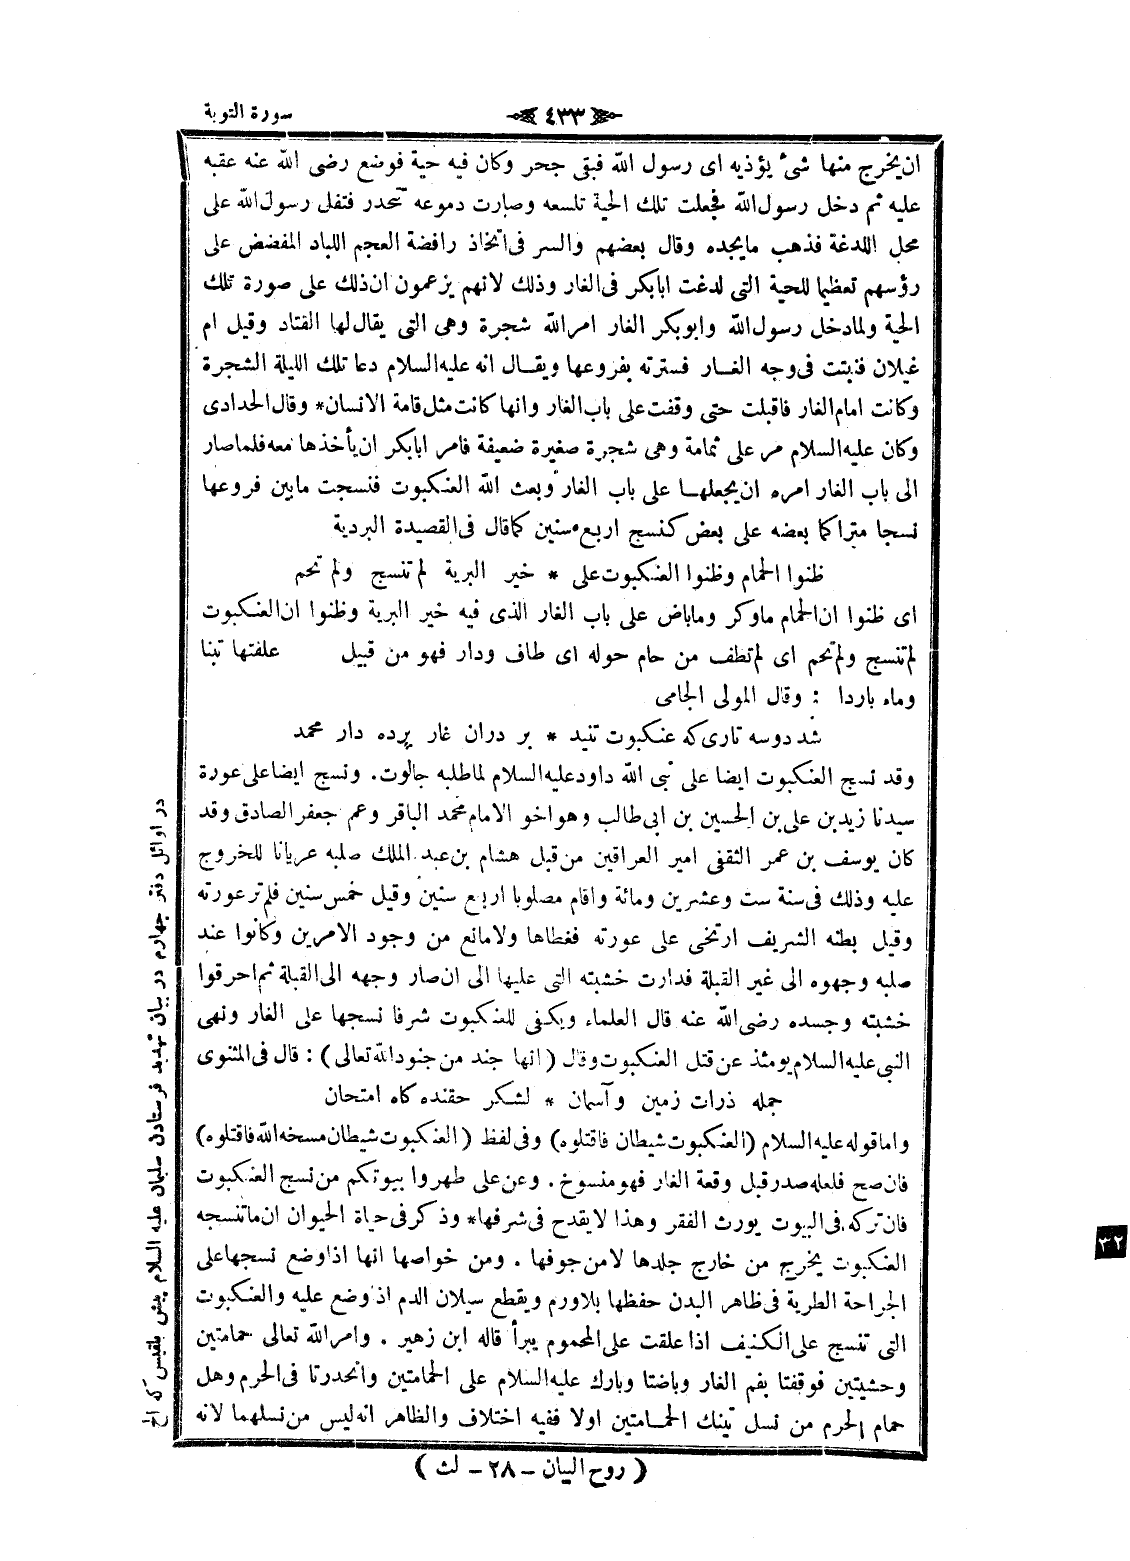 سورة التوبة
٤٣٣
ان يخرج منها شئ يؤذيه اى رسول الله فبقى جحر وكان فيه حية فوضع رضى الله عنه عقبه
عليه ثم دخل رسول الله فجعلت تلك الحية تلسعه وصارت دموعه تنحدر فتفل رسول الله على
محل اللدغة فذهب مايجده وقال بعضهم والسر فى اتخاذ رافضة العجم اللباد المفضض على
رؤسهم تعظيما للحية التى لدغت ابابكر فى الغار وذلك لانهم يزعمون ان ذلك على صورة تلك
الحية ولمادخل رسول الله وابوبكر الغار امر الله شجرة وهى التى يقال لها القتاد وقيل ام
غيلان فنبتت فى وجه الغار فسترته بفروعها ويقال انه عليه السلام دعا تلك الليلة الشجرة
وكانت امام الغار فاقبلت حتى وقفت على باب الغار وانها كانت مثل قامة الانسان* وقال الحدادى
وكان عليه السلام مر على ثمامة وهى شجرة صغيرة ضعيفة فامر ابابكر ان يأخذها معه فلماصار
الى باب الغار امره ان يجعلها على باب الغار وبعث الله العنكبوت فنسجت مابين فروعها
نسجا متراكما بعضه على بعض كنسج اربع سنين كماقال فى القصيدة البردية
ظنوا الحمام وظنوا العنكبوت على * خير البرية لم تنسج ولم تحم
اى ظنوا ان الحمام ماوكر وماباض على باب الغار الذى فيه خير البرية وظنوا ان العنكبوت
لم تنسج ولم تحم اى لم تطف من حام حوله اى طاف ودار فهو من قبيل علفتها تبنا
وماء باردا : وقال المولى الجامى
شد دوسه تارى كه عنكبوت تنيد * بر دران غار پرده دار محمد
وقد نسج العنكبوت ايضا على نبى الله داود عليه السلام لماطلبه جالوت. ونسج ايضا على عورة
سيدنا زيد بن على بن الحسين بن ابى طالب وهو اخو الامام محمد الباقر وعم جعفر الصادق وقد
كان يوسف بن عمر الثقفى امير العراقين من قبل هشام بن عبد الملك صلبه عريانا للخروج
عليه وذلك فى سنة ست وعشرين ومائة واقام مصلوبا اربع سنين وقيل خمس سنين فلم تر عورته
وقيل بطنه الشريف ارتخى على عورته فغطاها ولامانع من وجود الامرين وكانوا عند
صلبه وجهوه الى غير القبلة فدارت خشبته التى عليها الى ان صار وجهه الى القبلة ثم احرقوا
خشبته وجسده رضى الله عنه قال العلماء ويكفى للعنكبوت شرفا نسجها على الغار ونهى
النبى عليه السلام يومئذ عن قتل العنكبوت وقال (انها جند من جنود الله تعالى) : قال فى المثنوى
جمله ذرات زمين وآسمان * لشكر حقند كاه امتحان
واما قوله عليه السلام (العنكبوت شيطان فاقتلوه) وفى لفظ (العنكبوت شيطان مسخه الله فاقتلوه)
فان صح فلعله صدر قبل وقعة الغار فهو منسوخ. وعن على طهروا بيوتكم من نسج العنكبوت
فان تركه فى البيوت يورث الفقر وهذا لايقدح فى شرفها* وذكر فى حياة الحيوان ان ماتنسجه
العنكبوت يخرج من خارج جلدها لامن جوفها. ومن خواصها انها اذا وضع نسجها على
الجراحة الطرية فى ظاهر البدن حفظها بلاورم ويقطع سيلان الدم اذ وضع عليه والعنكبوت
التى تنسج على الكنيف اذا علقت على المحموم يبرأ قاله ابن زهير. وامر الله تعالى حمامتين
وحشيتين فوقفتا بفم الغار وباضتا وبارك عليه السلام على الحمامتين وانحدرتا فى الحرم وهل
حمام الحرم من نسل تينك الحمامتين اولا ففيه اختلاف والظاهر انه ليس من نسلهما لانه
در اوائل دفتر چهارم در بيان تهديد فرستادن سليمان عليه السلام پيش بلقيس كه الخ
٣٢
( روح البيان – ٢٨ – لث )